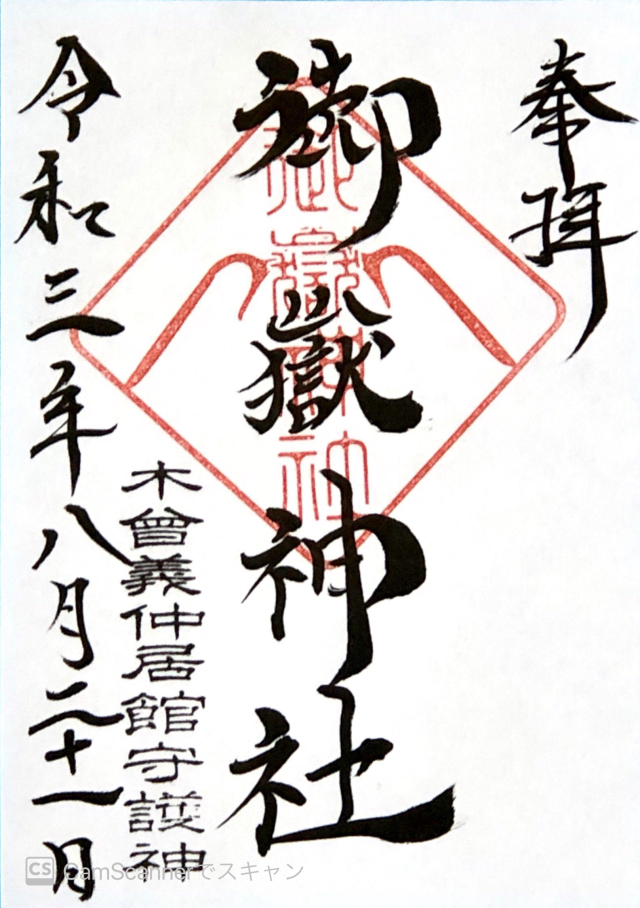 奉拝
御嶽神社
御嶽神社
木曾義仲居館守護神
令和三年八月二十一日
CS CamScannerでスキャン